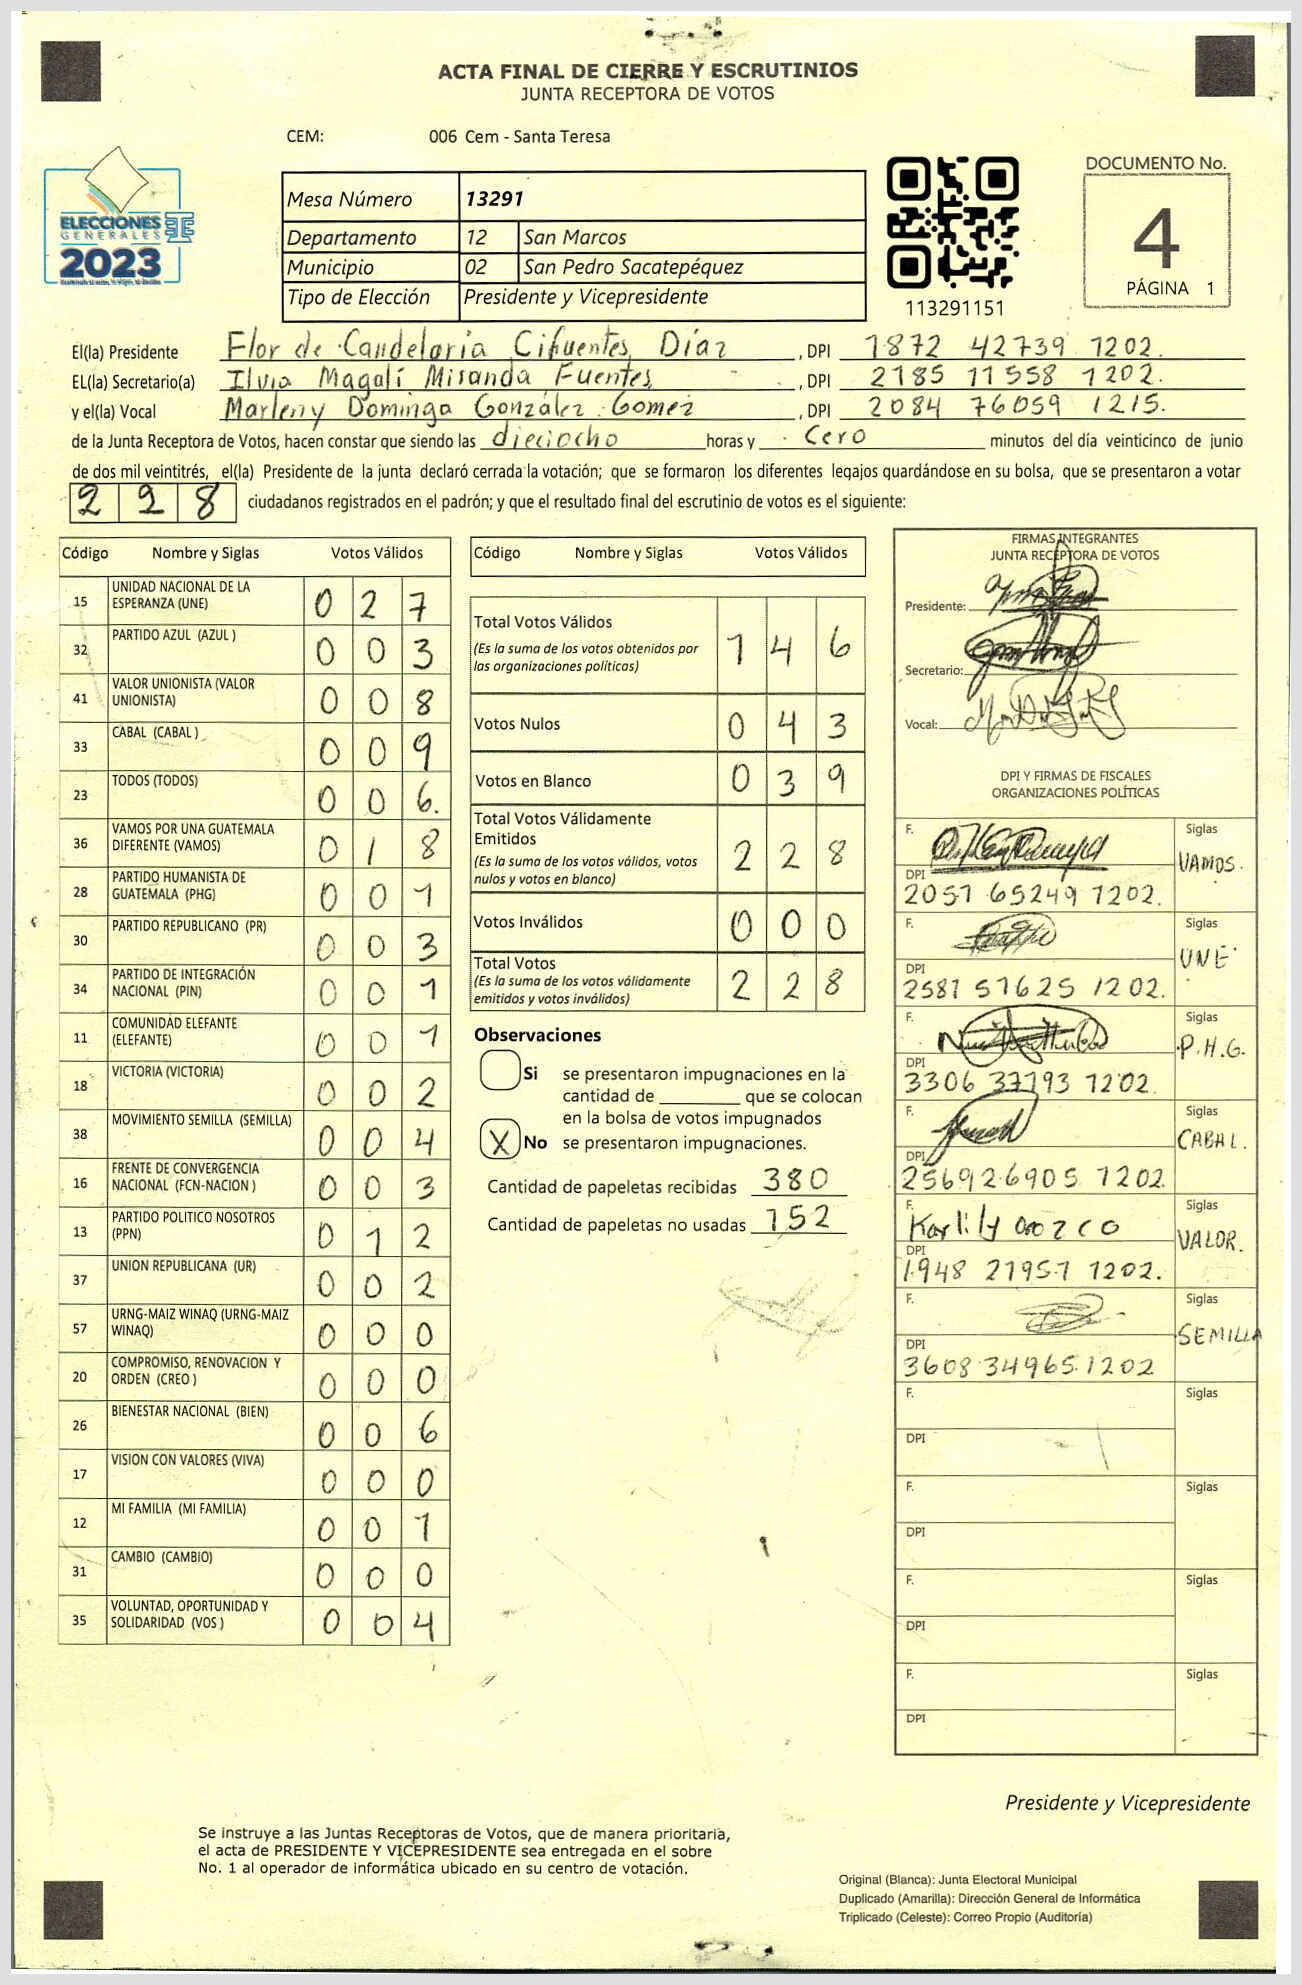 ACTA FINAL DE CIERRE Y ESCRUTINIOS
JUNTA RECEPTORA DE VOTOS
CEM: 006 Cem - Santa Teresa
ELECCIONES
GENERALES
2023
Mesa Número 13291
Departamento 12 San Marcos
Municipio 02 San Pedro Sacatepéquez
Tipo de Elección Presidente y Vicepresidente
113291151
DOCUMENTO No.
4
PÁGINA 1
El(la) Presidente Flor de Candelaria Cifuentes Díaz, DPI 1872 42739 1202.
EL(la) Secretario(a) Ilvia Magalí Miranda Fuentes, DPI 2185 11558 1202.
y el(la) Vocal Marleny Dominga González Gomez, DPI 2084 76059 1215.
de la Junta Receptora de Votos, hacen constar que siendo las dieciocho horas y Cero minutos del día veinticinco de junio
de dos mil veintitrés, el(la) Presidente de la junta declaró cerrada la votación; que se formaron los diferentes legajos guardándose en su bolsa, que se presentaron a votar
228 ciudadanos registrados en el padrón; y que el resultado final del escrutinio de votos es el siguiente:
Código Nombre y Siglas Votos Válidos
15 UNIDAD NACIONAL DE LA ESPERANZA (UNE) 0 2 7
32 PARTIDO AZUL (AZUL ) 0 0 3
41 VALOR UNIONISTA (VALOR UNIONISTA) 0 0 8
33 CABAL (CABAL ) 0 0 9
23 TODOS (TODOS) 0 0 6.
36 VAMOS POR UNA GUATEMALA DIFERENTE (VAMOS) 0 1 8
28 PARTIDO HUMANISTA DE GUATEMALA (PHG) 0 0 1
30 PARTIDO REPUBLICANO (PR) 0 0 3
34 PARTIDO DE INTEGRACIÓN NACIONAL (PIN) 0 0 1
11 COMUNIDAD ELEFANTE (ELEFANTE) 0 0 1
18 VICTORIA (VICTORIA) 0 0 2
38 MOVIMIENTO SEMILLA (SEMILLA) 0 0 4
16 FRENTE DE CONVERGENCIA NACIONAL (FCN-NACION ) 0 0 3
13 PARTIDO POLITICO NOSOTROS (PPN) 0 1 2
37 UNION REPUBLICANA (UR) 0 0 2
57 URNG-MAIZ WINAQ (URNG-MAIZ WINAQ) 0 0 0
20 COMPROMISO, RENOVACION Y ORDEN (CREO ) 0 0 0
26 BIENESTAR NACIONAL (BIEN) 0 0 6
17 VISION CON VALORES (VIVA) 0 0 0
12 MI FAMILIA (MI FAMILIA) 0 0 1
31 CAMBIO (CAMBIO) 0 0 0
35 VOLUNTAD, OPORTUNIDAD Y SOLIDARIDAD (VOS ) 0 0 4
Código Nombre y Siglas Votos Válidos
Total Votos Válidos 1 4 6
(Es la suma de los votos obtenidos por
las organizaciones políticas)
Votos Nulos 0 4 3
Votos en Blanco 0 3 9
Total Votos Válidamente
Emitidos 2 2 8
(Es la suma de los votos válidos, votos
nulos y votos en blanco)
Votos Inválidos 0 0 0
Total Votos 2 2 8
(Es la suma de los votos válidamente
emitidos y votos inválidos)
Observaciones
Si se presentaron impugnaciones en la
cantidad de ________ que se colocan
en la bolsa de votos impugnados
X No se presentaron impugnaciones.
Cantidad de papeletas recibidas 380
Cantidad de papeletas no usadas 152
FIRMAS INTEGRANTES
JUNTA RECEPTORA DE VOTOS
Presidente:
Secretario:
Vocal:
DPI Y FIRMAS DE FISCALES
ORGANIZACIONES POLÍTICAS
F. Siglas
VAMOS.
DPI
2057 65249 1202.
F. Siglas
UNE
DPI
2581 57625 1202.
F. Siglas
P.H.G.
DPI
3306 37793 1202.
F. Siglas
CABAL.
DPI
2569 26905 1202
F. Siglas
Karlily Orozco VALOR.
DPI
1948 21957 1202.
F. Siglas
SEMILLA
DPI
3608 34965 1202
F. Siglas
DPI
F. Siglas
DPI
F. Siglas
DPI
F. Siglas
DPI
Presidente y Vicepresidente
Se instruye a las Juntas Receptoras de Votos, que de manera prioritaria,
el acta de PRESIDENTE Y VICEPRESIDENTE sea entregada en el sobre
No. 1 al operador de informática ubicado en su centro de votación.
Original (Blanca): Junta Electoral Municipal
Duplicado (Amarilla): Dirección General de Informática
Triplicado (Celeste): Correo Propio (Auditoría)